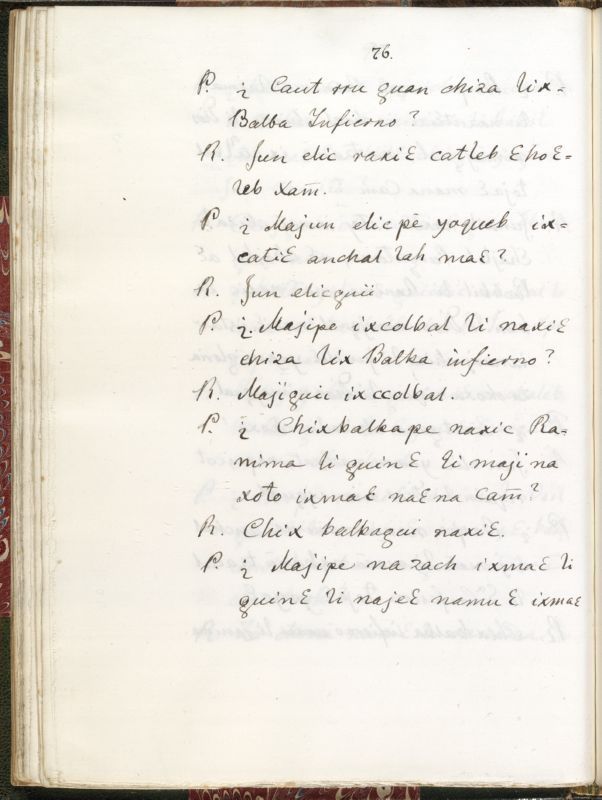 76.
P. ¿ Caut rru guan chiza lix=
Balba Infierno?
R. Jun elic raxiƐ catleb ƐhoƐ=
leb xam̃.
P. ¿ Majun elic pe yogueb ix=
catiƐ anchal lah maƐ?
R. Jun elicguii
P. ¿ Majipe ixcolbal li naxiƐ
chiza lix Balba infierno?
R. Majiguii ixccolbal.
P. ¿ Chixbalbape naxic Ra=
nima li guinƐ li maji na
xoto ixmaƐ naƐna Cam̃?
R. Chix balbagui naxiƐ.
P. ¿ Majipe na zach ixmaƐ li
guinƐ li najeƐ namuƐ ixmaƐ